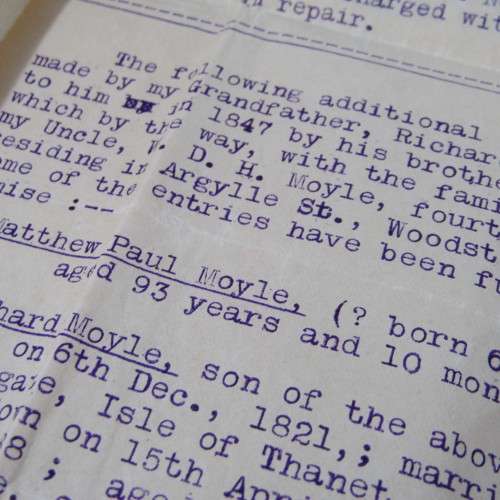 charged with
repair.
The following additional
made by my Grandfather, Richar
to him in 1847 by his brothe
which by the way, with the fami
my Uncle, W. D. H. Moyle, fourt
residing in Argylle St., Woodst
ome of the entries have been fu
ise :--
Matthew Paul Moyle, (? born 6
aged 93 years and 10 mon
hard Moyle, son of the abov
on 6th Dec., 1821,; marri
gate, Isle of Thanet
on 15th Apri
8 ; age